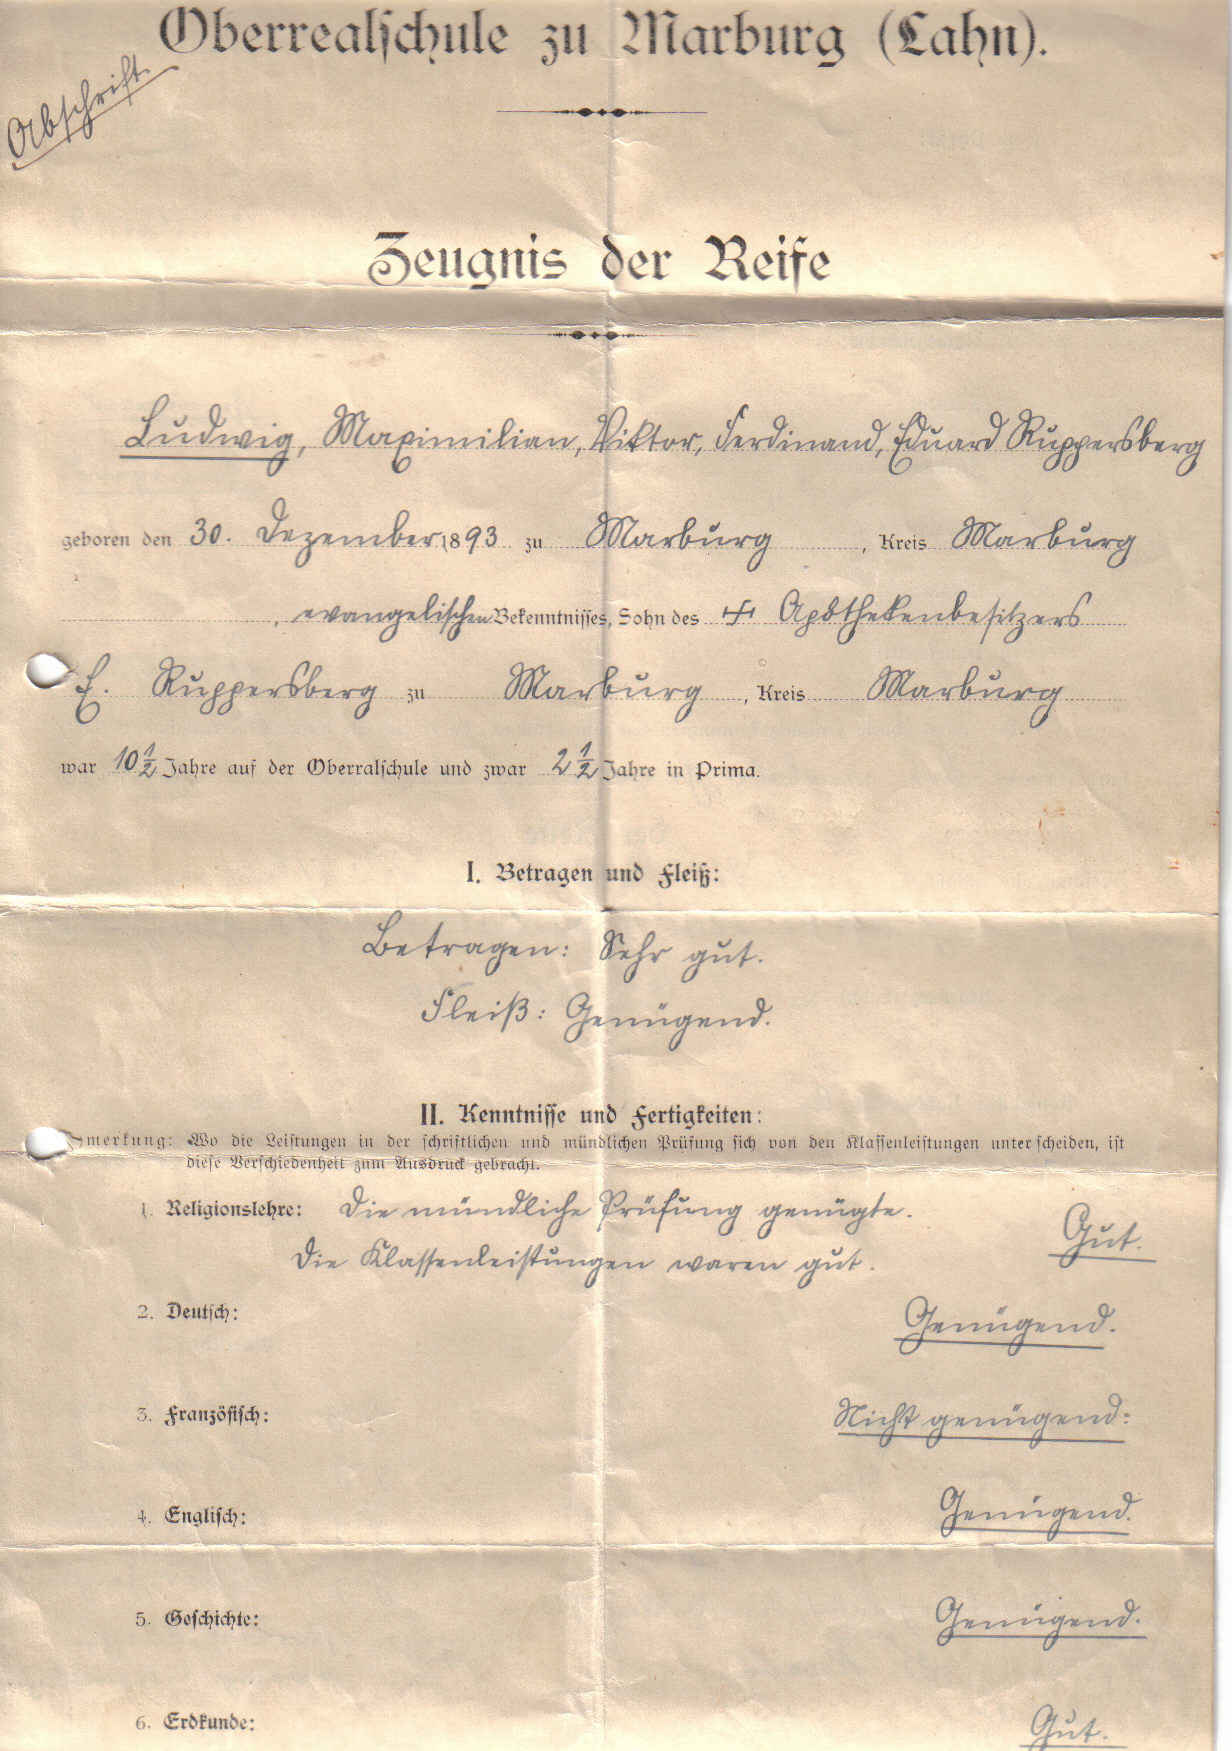 Oberrealschule zu Marburg (Lahn).
Abschrift
Zeugnis der Reife
Ludwig, Maximilian, Viktor, Ferdinand, Eduard Ruppersberg
geboren den 30. Dezember 1893 zu Marburg, Kreis Marburg
, evangelischen Bekenntnisses, Sohn des + Apothekenbesitzers
E. Ruppersberg zu Marburg, Kreis Marburg
war 10 1/2 Jahre auf der Oberralschule und zwar 2 1/2 Jahre in Prima.
I. Betragen und Fleiß:
Betragen: Sehr gut.
Fleiß: Genügend.
II. Kenntnisse und Fertigkeiten:
merkung: Wo die Leistungen in der schriftlichen und mündlichen Prüfung sich von den Klassenleistungen unterscheiden, ist
diese Verschiedenheit zum Ausdruck gebracht.
1. Religionslehre: Die mündliche Prüfung genügte.
Die Klassenleistungen waren gut. Gut.
2. Deutsch: Genügend.
3. Französisch: Nicht genügend.
4. Englisch: Genügend.
5. Geschichte: Genügend.
6. Erdkunde: Gut.